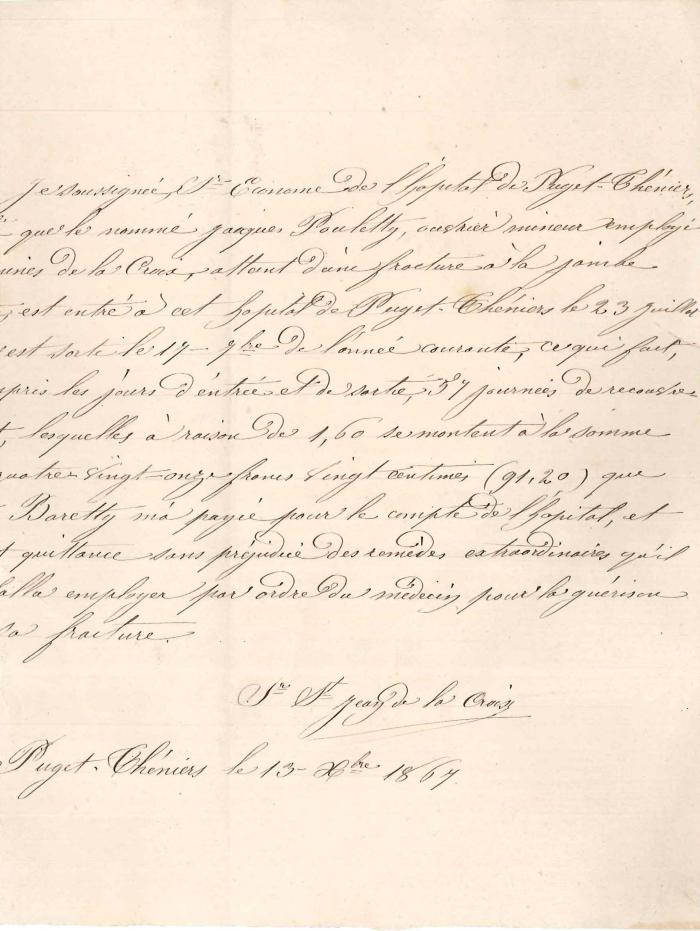 Je soussignée, Sr Econome de l'hopital de Puget-Théniers,
que le nommé Jacques Pouletty, ouvrier mineur employé
mines de la Croix, attaint d'une fracture à la jambe
est entré à cet hopital de Puget-Théniers le 23 juillet
est sorti le 17 - 7bre de l'année courante, ce qui fait,
pris les jours d'entrée et de sortie, 57 journées de recouvre-
t, lesquelles à raison de 1,60 se montent à la somme
quatre-vingt-onze francs vingt centimes (91,20) que
Baretty m'a payé pour le compte de l'hopital, et
t quittance sans préjudice des remèdes extraordinaires qu'il
falla employer par ordre du médecin pour la guérison
sa fracture.
Sr St Jean de la Croix
Puget-Théniers le 13 - Xbre 1867.